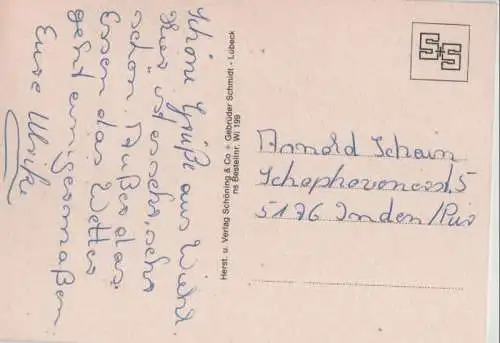 Schöne Grüße aus Wiehl
Hier ist es schrecklich
schön. Außer das
Essen das Wetter
geht einigermaßen
Eure Ulrike
Herst. u. Verlag Schöning & Co + Gebrüder Schmidt - Lübeck
ns Bestellnr. W. 199
S+S
Arnold Schaun
Schophovenerstr. 5
5176 Inden/Pier